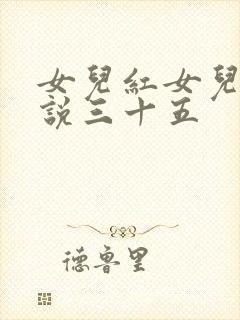 女兒紅女兒
說三十五
德魯里